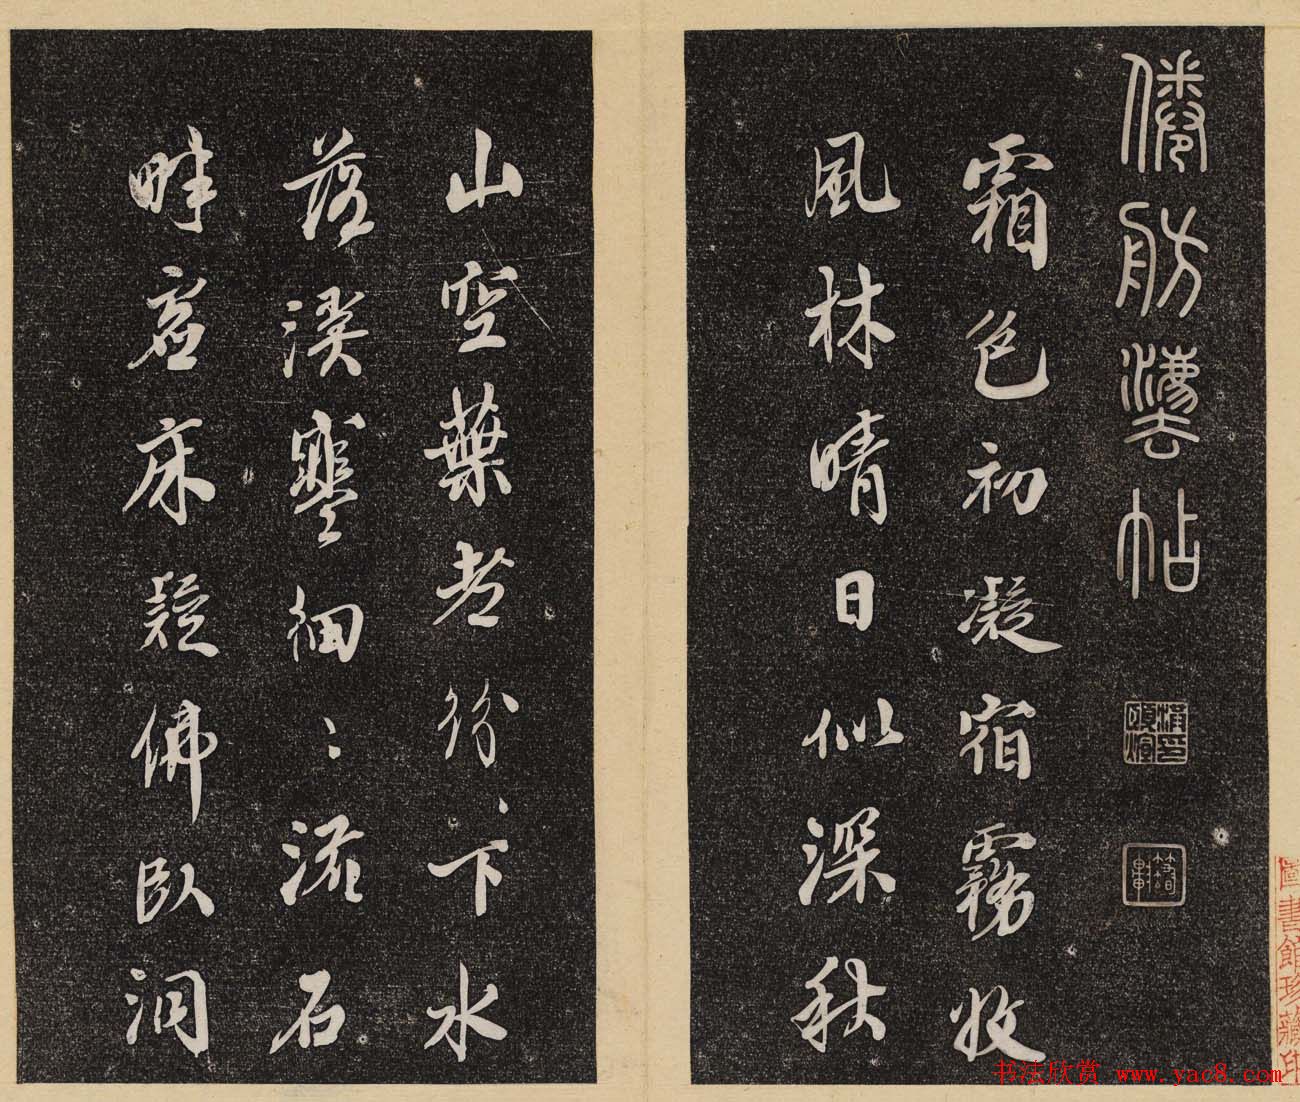 倦舫灋帖
洪印頤煊
霜色初凝宿霧收
風林晴日似深秋
山空葉老紛〻下水
落溪寒細〻流石
畔床疑佛臥洞
圖書館珍藏印
书法欣赏 www.yac8.com